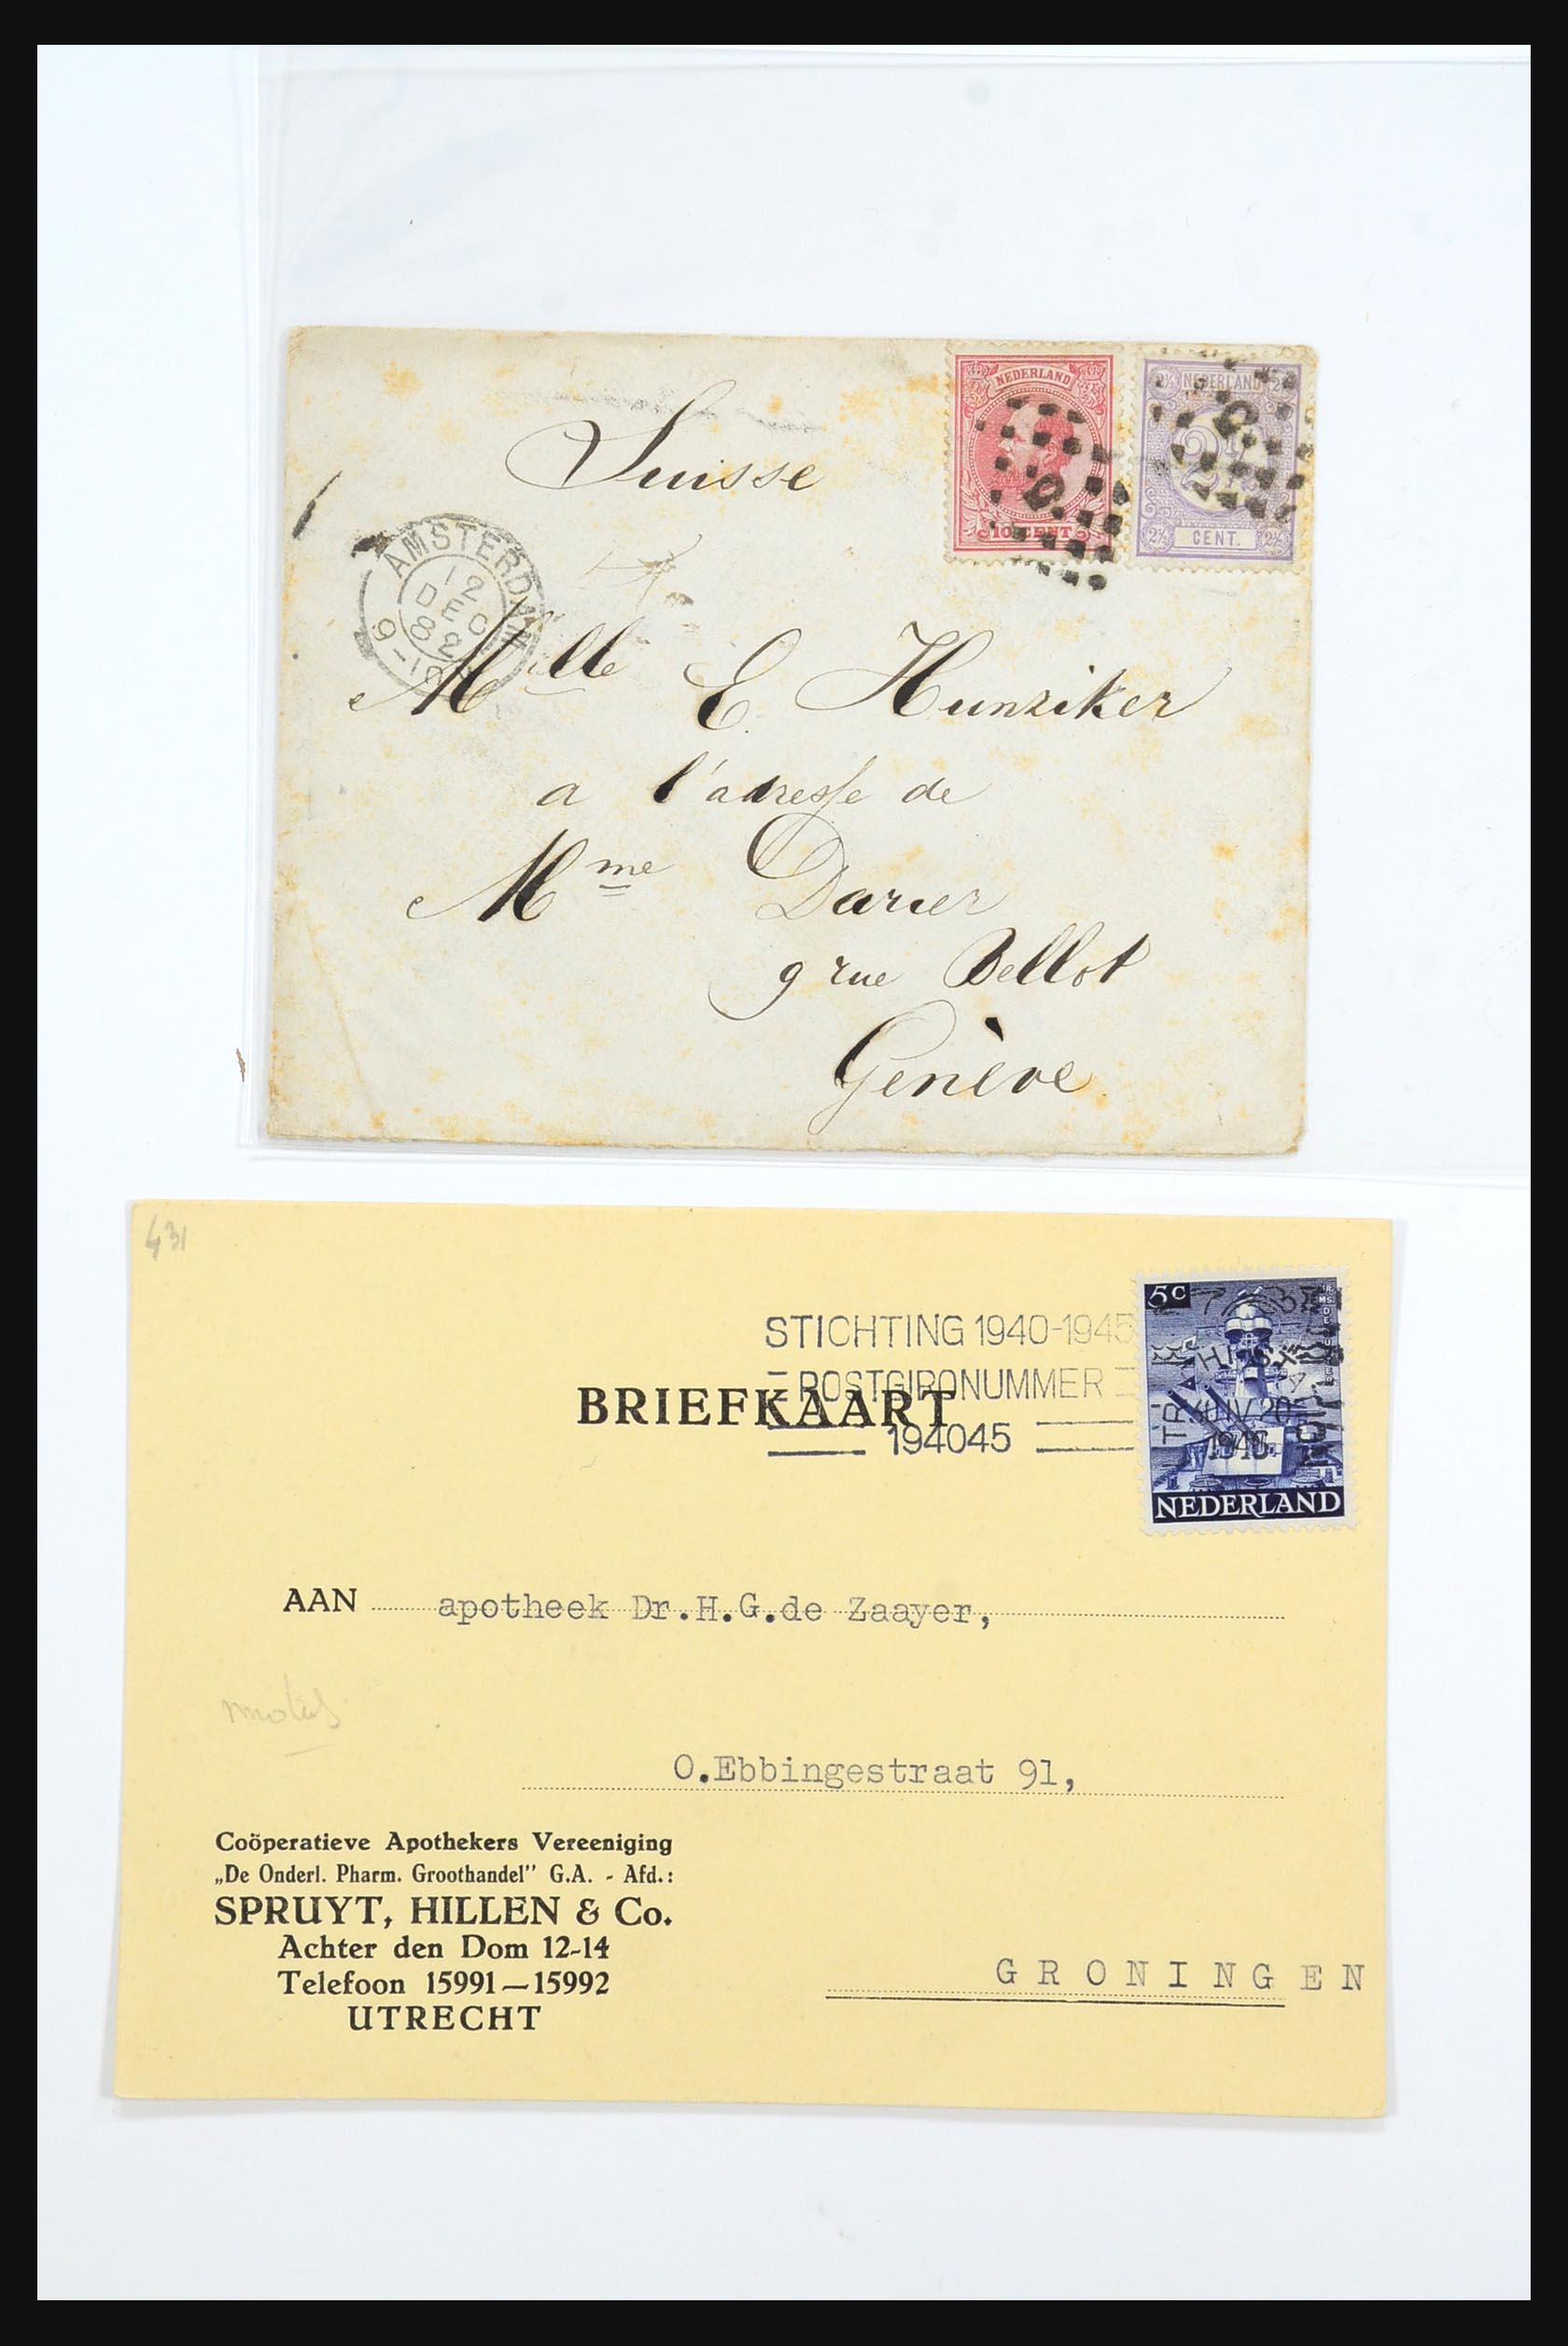 Suisse
NEDERLAND
10 CENT
2½ NEDERLAND 2½
2½
2½ CENT. 2½
AMSTERDAM
12
DEC
82
9-10
Mlle E. Hunziker
a l'adresse de
Mme Darier
9 rue Bellot
Genève
431
STICHTING 1940-1945
POSTGIRONUMMER
194045
BRIEFKAART
5c
NEDERLAND
AAN apotheek Dr.H.G.de Zaayer,
O.Ebbingestraat 91,
Coöperatieve Apothekers Vereeniging
„De Onderl. Pharm. Groothandel” G.A. - Afd.:
SPRUYT, HILLEN & Co.
Achter den Dom 12-14
Telefoon 15991—15992
UTRECHT
GRONINGEN